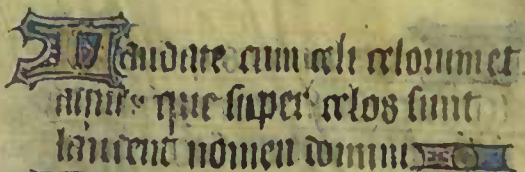 Laudate eum celi celorum et
aque que super celos sunt
laudent nomen domini